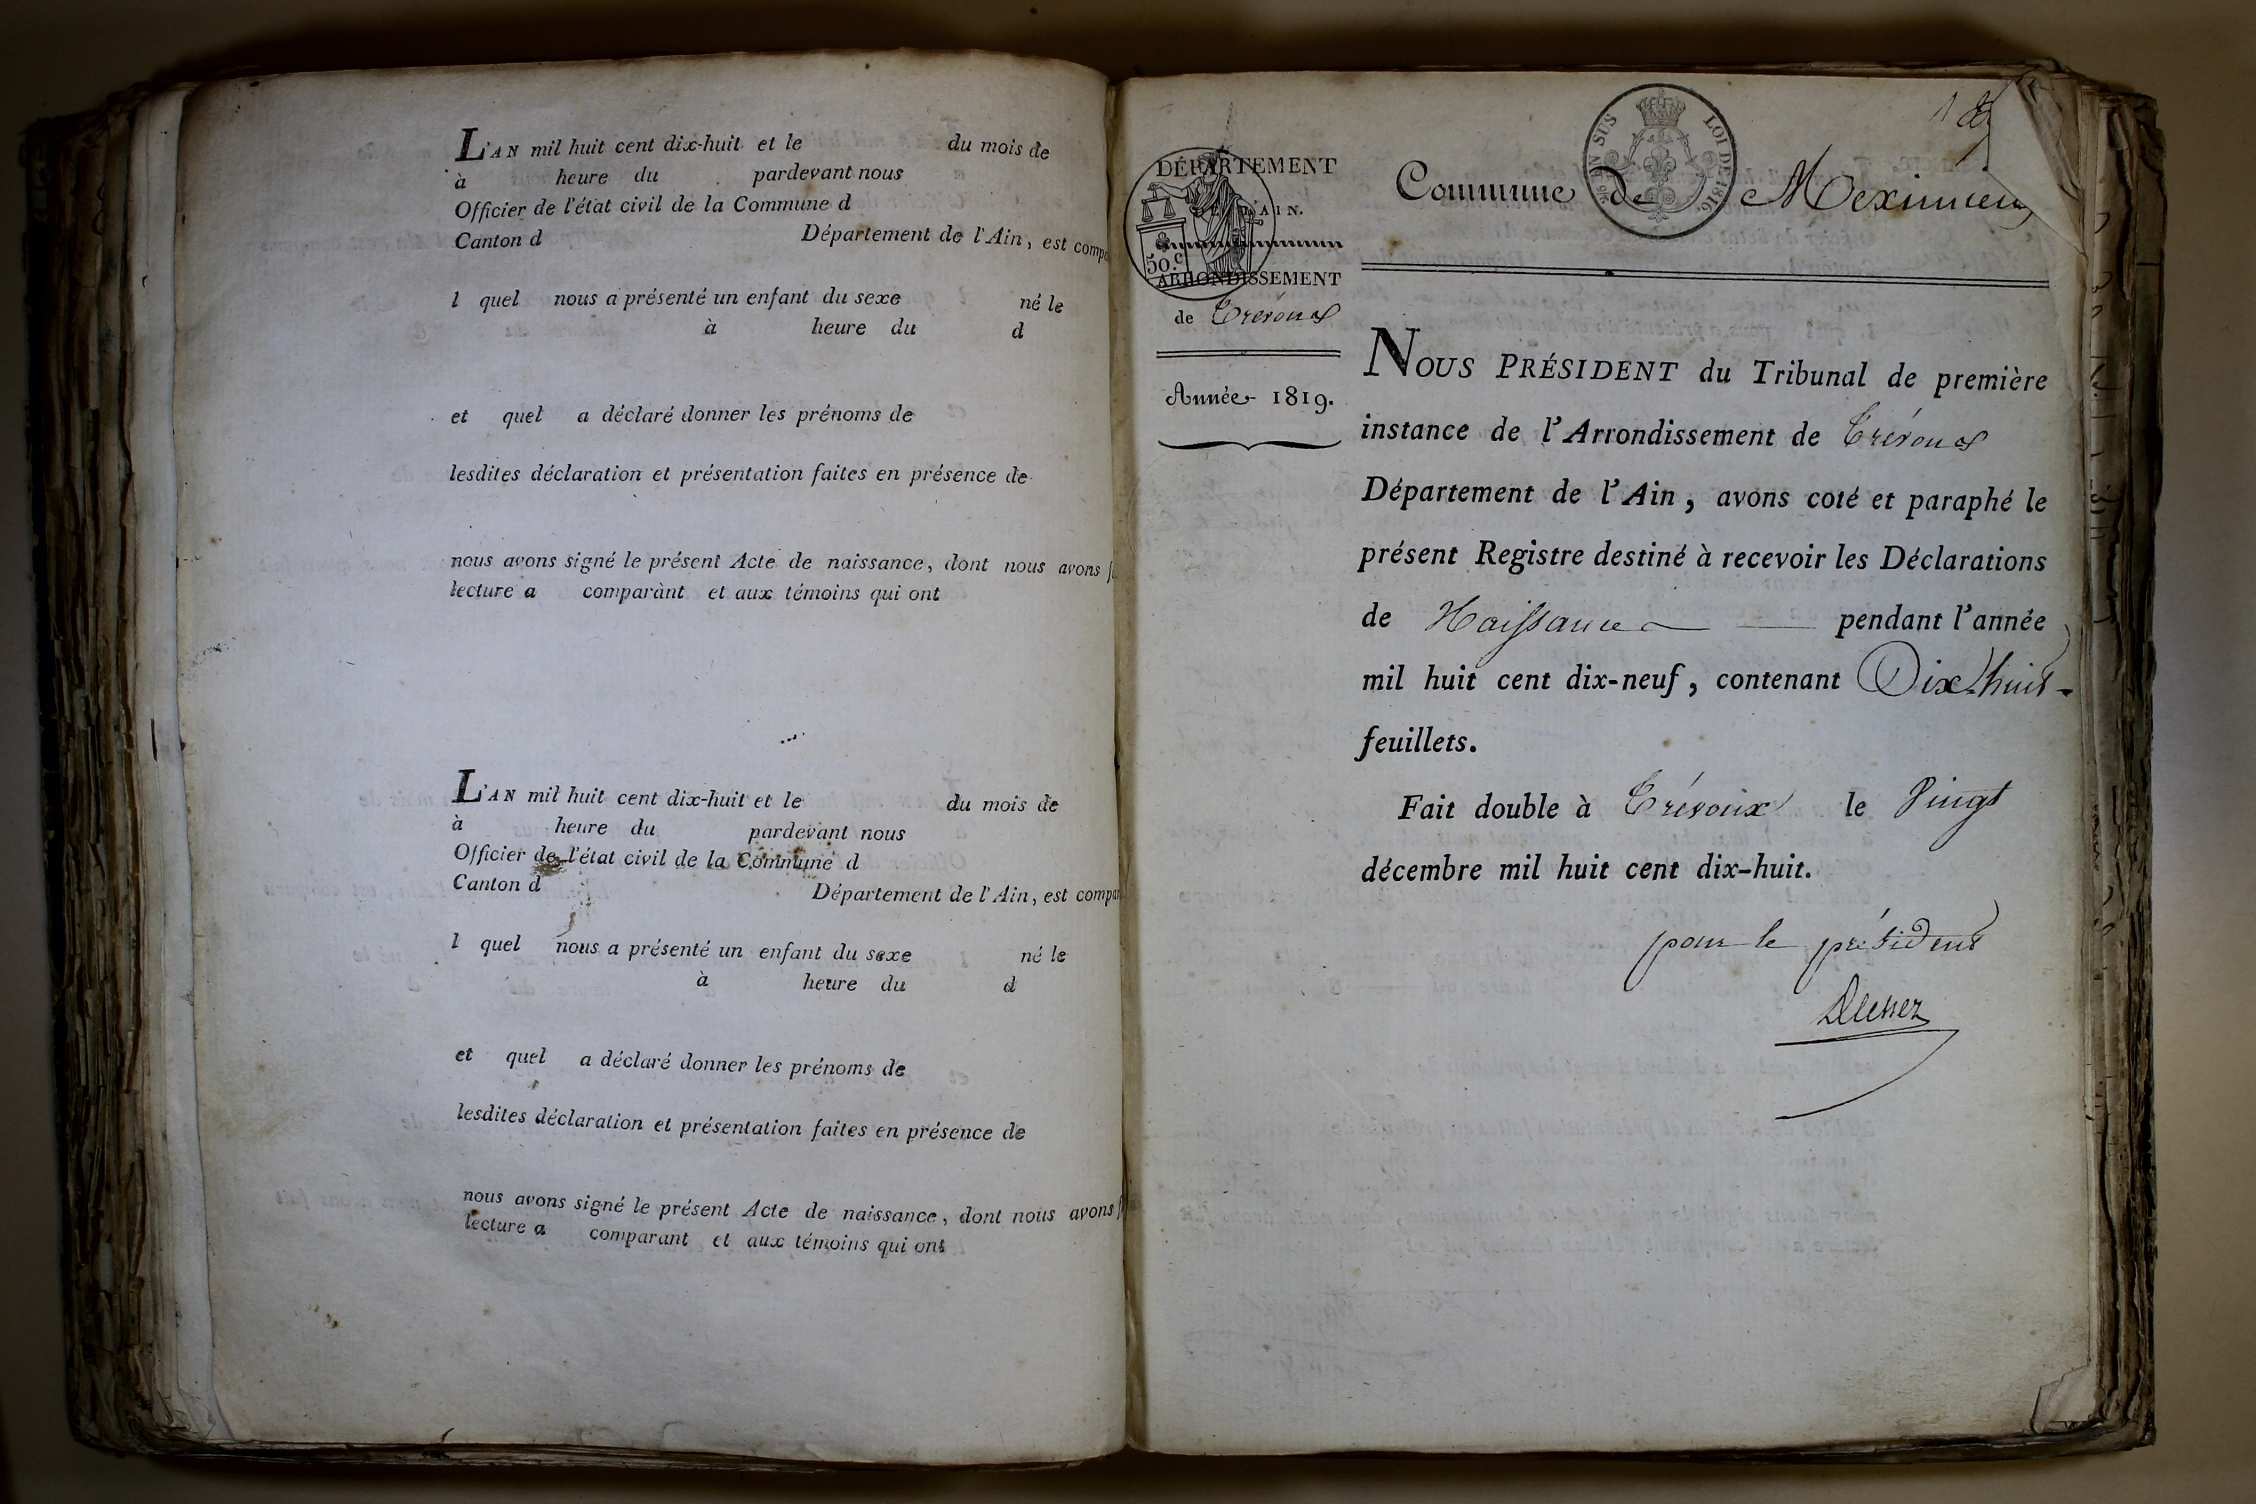 L'AN mil huit cent dix-huit et le du mois de
à heure du pardevant nous
Officier de l'état civil de la Commune d
Canton d Département de l'Ain, est compa
l quel nous a présenté un enfant du sexe né le
à heure du d
et quel a déclaré donner les prénoms de
lesdites déclaration et présentation faites en présence de
nous avons signé le présent Acte de naissance, dont nous avons f
lecture a comparant et aux témoins qui ont
L'AN mil huit cent dix-huit et le du mois de
à heure du pardevant nous
Officier de l'état civil de la Commune d
Canton d Département de l'Ain, est compa
l quel nous a présenté un enfant du sexe né le
à heure du d
et quel a déclaré donner les prénoms de
lesdites déclaration et présentation faites en présence de
nous avons signé le présent Acte de naissance, dont nous avons f
lecture a comparant et aux témoins qui ont
DÉPARTEMENT
DE L'AIN.
50.c
ARRONDISSEMENT
de Trévoux
Année 1819.
EN SUS LOI DE 1816.
Commune de Meximieux
NOUS PRÉSIDENT du Tribunal de première
instance de l'Arrondissement de Trévoux
Département de l'Ain, avons coté et paraphé le
présent Registre destiné à recevoir les Déclarations
de Naissance pendant l'année
mil huit cent dix-neuf, contenant Dix huit
feuillets.
Fait double à Trévoux le Vingt
décembre mil huit cent dix-huit.
pour le président